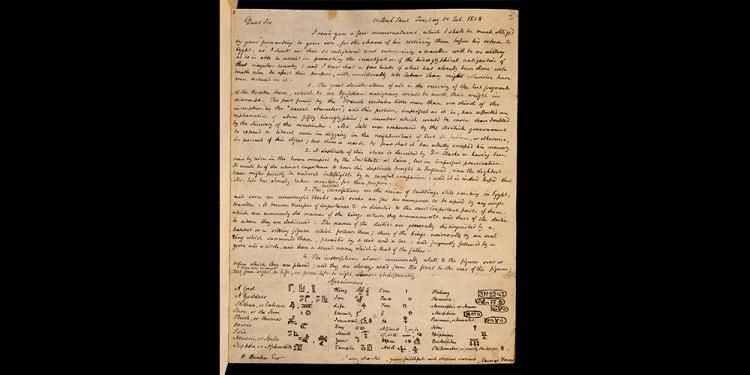 Dear Sir
Welbeck Street Tuesday 10 Feb. 1818
I send you a few memorandums, which I shall be much obliged
by your forwarding to your son, for the chance of his receiving them before his return to
Egypt, as I doubt not that so enlightened and enterprising a traveller will be as willing
as he is able to assist in promoting the investigation of the hieroglyphical antiquities of
that singular country: and I trust that a few hints of what has already been done will
enable him to effect this purpose, with considerably less labour than might otherwise have
been required in it.
1. The great desideratum of all is the recovery of the lost fragments
of the Rosetta Stone, which to an Egyptian antiquary would be worth their weight in
diamonds. The part found by the French contains little more than one third of the
inscription in the "sacred characters"; and this portion, imperfect as it is, has afforded an
explanation of above fifty hieroglyphics; a number which would be more than doubled
by the discovery of the remainder. Mr. Salt was empowered by the British government
to expend a liberal sum in digging in the neighbourhood of Fort St. Julien, or otherwise,
in pursuit of this object; but there is reason to fear that it has wholly escaped his memory.
2. A duplicate of this stone is described by Dr. Clarke as having been
seen by him in the house occupied by the Institute at Cairo, but in imperfect preservation.
It would be of the utmost importance to have this duplicate brought to England, since the slightest
traces might possibly be rendered intelligible by a careful comparison; and it is indeed hoped that
Mr. Salt has already taken measures for this purpose.
3. The inscriptions on the ruins of buildings still existing in Egypt,
and even on unwrought blocks and rocks are far too numerous to be copied by any single
traveller: it becomes therefore of importance to be directed to the most important parts of them,
which are commonly the names of the kings whom they commemorate, and those of the deities
to whom they are dedicated. The names of the deities are generally distinguished by a
hatchet or a sitting figure which follows them; those of the kings universally by an oval
ring which surrounds them, preceded by a reed and a bee: and frequently followed by a
goose and a circle, and then a second name, which is that of the father.
4. The inscriptions almost universally relate to the figures over or
before which they are placed: and they are always read from the front to the rear of the figures;
but from right to left, or from left to right, almost indifferently.
Specimens
A God
King
One
Ptolemy
A Goddess
Son
Two
Berenice
Phthah, or Vulcan
Life
Ten
Phre, or the Sun
Eternity
Mesphres
Thoth, or Hermes
Immortal
Osiris
Day
Isis
Month
Nephthe
Year
Temple
And
W. Bankes Esq.
Thomas Young